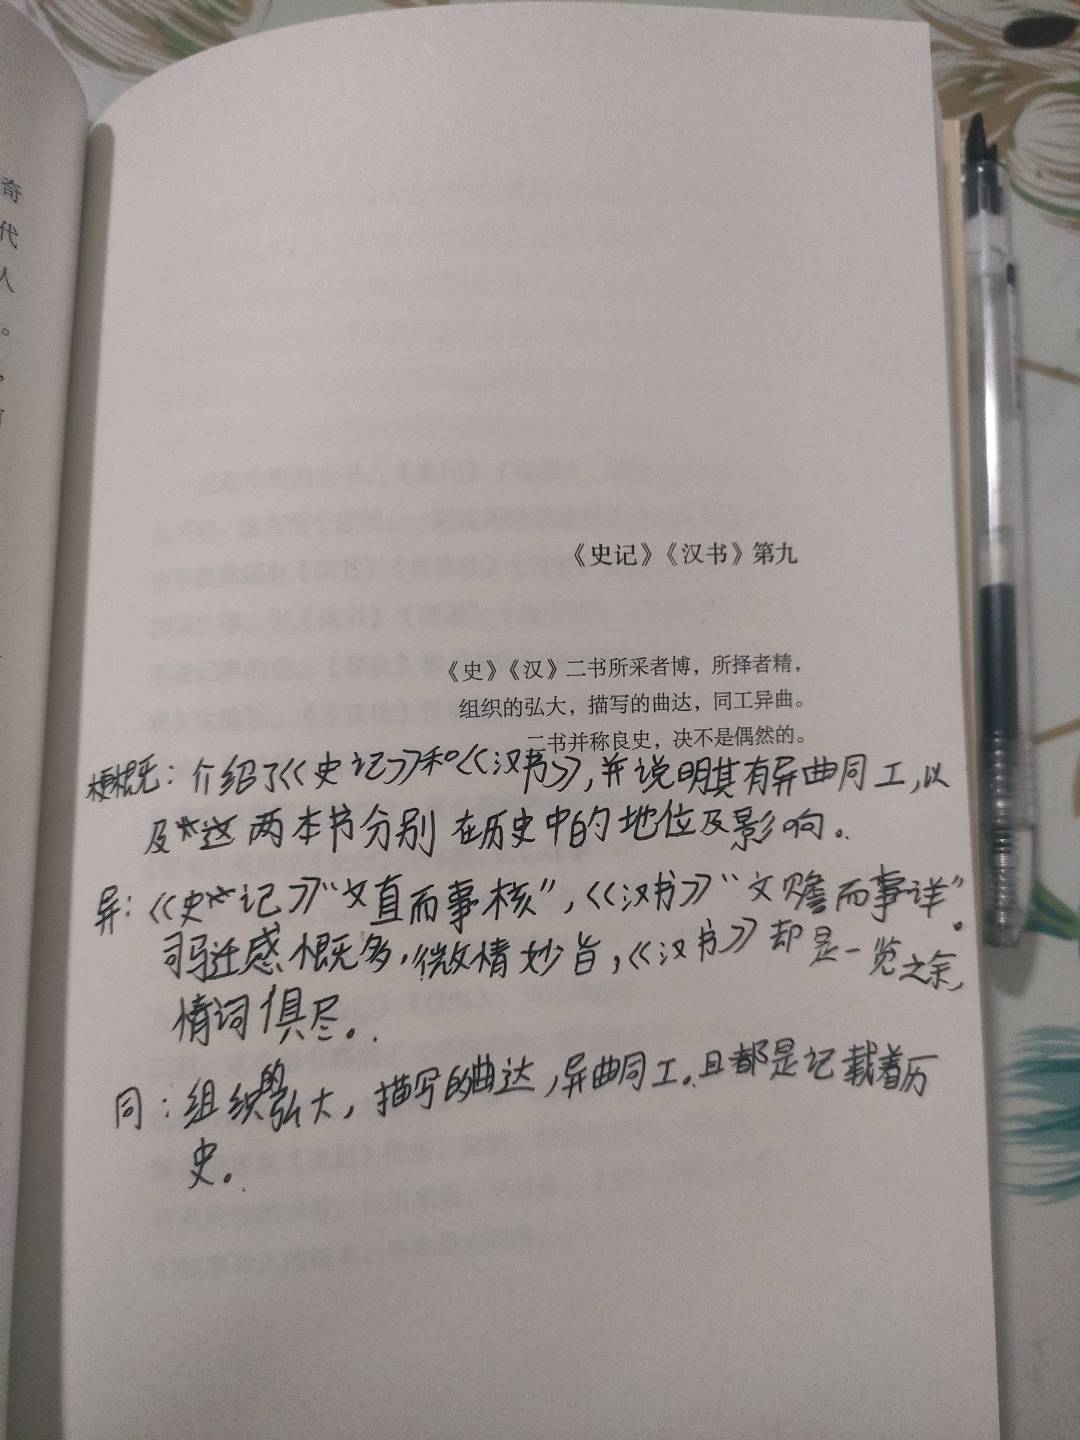 奇
代
人
。
，
《史记》《汉书》第九
《史》《汉》二书所采者博，所择者精，
组织的弘大，描写的曲达，同工异曲。
二书并称良史，决不是偶然的。
梗概：介绍了《史记》和《汉书》，并说明其有异曲同工，以
及这两本书分别在历史中的地位及影响。
异：《史记》“文直而事核”，《汉书》“文赡而事详”。
司马迁感慨多，微情妙旨，《汉书》却是一览之余，
情词俱尽。
同：组织的弘大，描写的曲达，异曲同工。且都是记载着历
史。